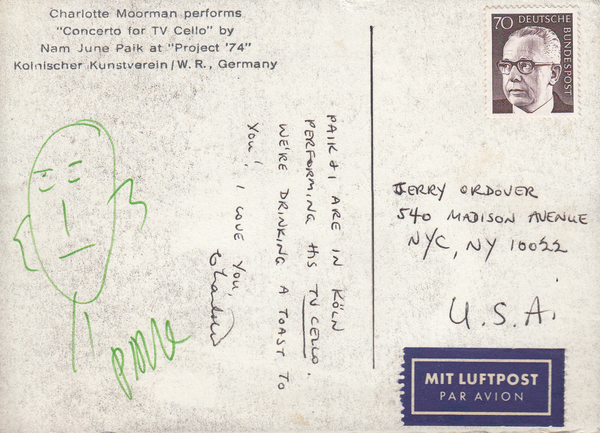 Charlotte Moorman performs
"Concerto for TV Cello" by
Nam June Paik at "Project '74"
Kolnischer Kunstverein/W.R., Germany
PAIK & I ARE IN KÖLN
PERFORMING HIS TV CELLO.
WE'RE DRINKING A TOAST TO
YOU! I LOVE YOU,
Charlotte
PAIK
70 DEUTSCHE
BUNDESPOST
JERRY ORDOVER
540 MADISON AVENUE
NYC, NY 10022
U.S.A.
MIT LUFTPOST
PAR AVION